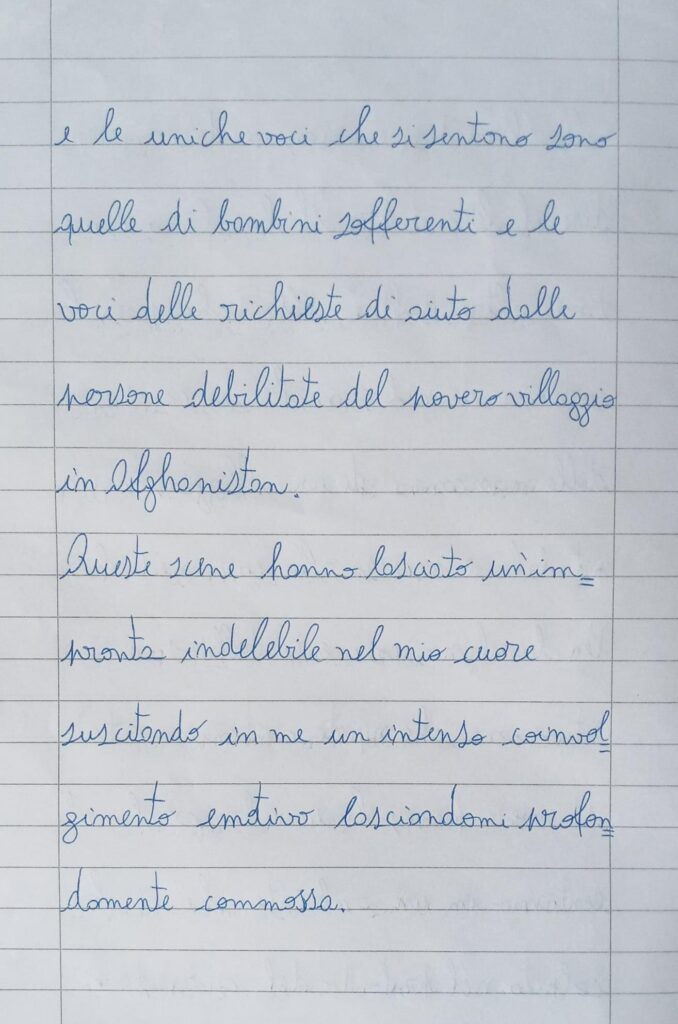 e le uniche voci che si sentono sono
quelle di bambini sofferenti e le
voci delle richieste di aiuto dalle
persone debilitate del povero villaggio
in Afghanistan.
Queste scene hanno lasciato un'im=
pronta indelebile nel mio cuore
suscitando in me un intenso coinvol=
gimento emotivo lasciandomi profon=
damente commossa.